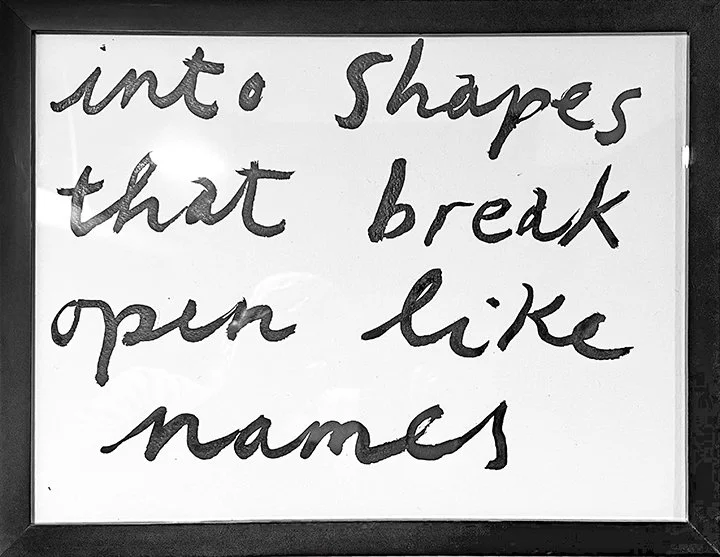 into Shapes
that break
open like
names